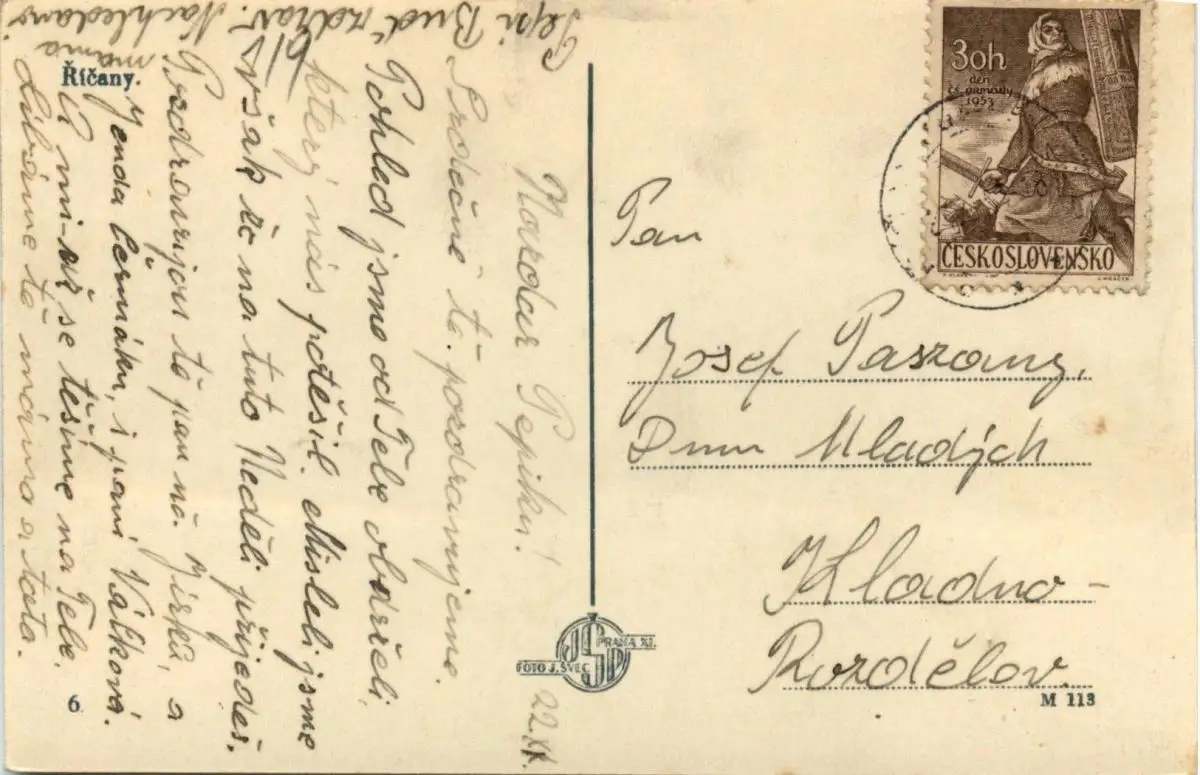 Nazdar Pepiku! 22.XI.
Srdečně tě pozdravujeme.
Pohled jsme od Tebe obdrželi
který nás potěšil. Misleli jsme
všák že na tuto Neděli přijedeš.
Pozdravujou tě pan ná. Jirků, a
Jenda Čermáku, i paní Válková.
A mi už se těšíme na Tebe.
Líbáme tě máma a táta.
Pepi Buď zdráv. Nashledanou
mama
Říčany.
6
FOTO J. ŠVEC
PRAHA XI.
JŠP
30h
den
čs. armády
1953
ČESKOSLOVENSKO
Pan
Josef Paszany,
Dum Mladých
Kladno –
Rozdělov.
M 113